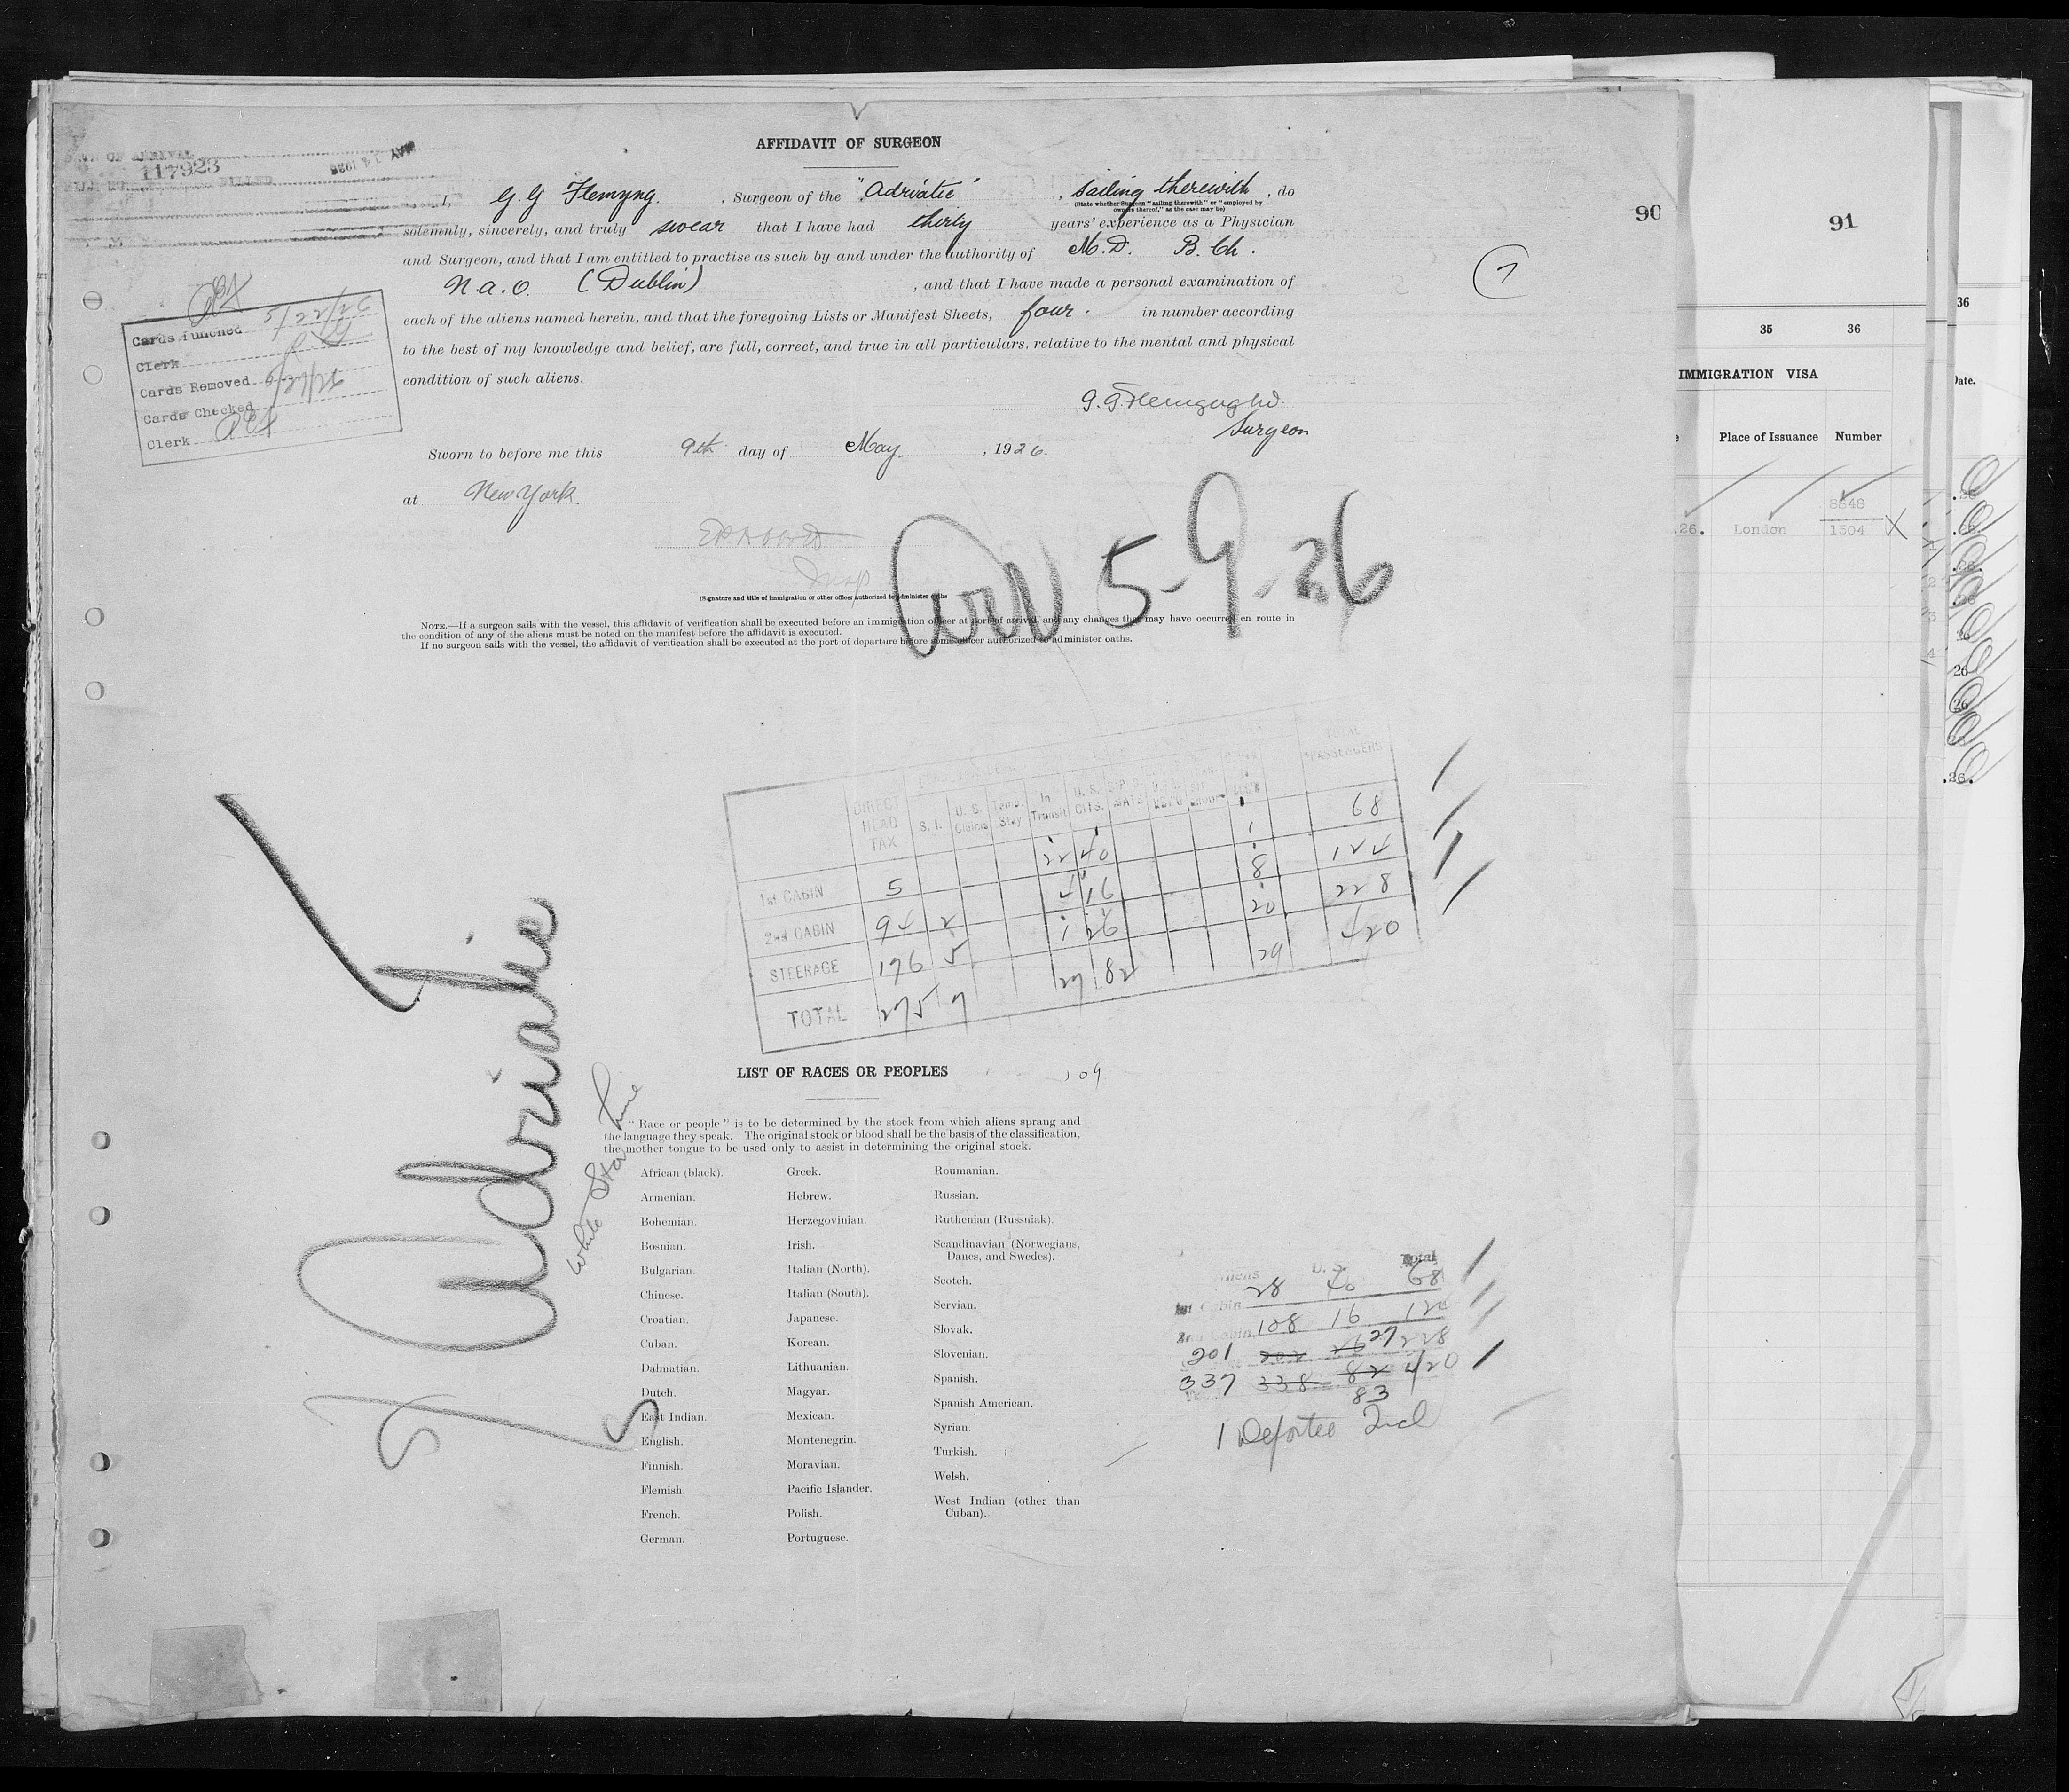 AFFIDAVIT OF SURGEON
OF ARRIVAL
117923
MAY 14 1926
I, G. G. Flemyng. , Surgeon of the "Adriatic" , sailing therewith , do
(State whether Surgeon "sailing therewith" or "employed by
owners thereof," as the case may be)
solemnly, sincerely, and truly swear that I have had thirty years' experience as a Physician
and Surgeon, and that I am entitled to practise as such by and under the authority of M.D. B.Ch.
(Dublin) , and that I have made a personal examination of
each of the aliens named herein, and that the foregoing Lists or Manifest Sheets, four. in number according
to the best of my knowledge and belief, are full, correct, and true in all particulars, relative to the mental and physical
condition of such aliens.
Surgeon
Sworn to before me this 9th day of May , 1926.
at New York.
(Signature and title of immigration or other officer authorized to administer oaths
NOTE.—If a surgeon sails with the vessel, this affidavit of verification shall be executed before an immigration officer at port of arrival, and any changes that may have occurred en route in
the condition of any of the aliens must be noted on the manifest before the affidavit is executed.
If no surgeon sails with the vessel, the affidavit of verification shall be executed at the port of departure before some officer authorized to administer oaths.
Arr 5-9-26
Cards Punched 5/22/26
Clerk
Cards Removed
Cards Checked
Clerk
7
90
91
35 36
IMMIGRATION VISA
Place of Issuance Number
8848
26. London 1504 X
36
Date.
DIRECT HEAD TAX S. I. U. S. Claims Temp. Stay In Transit U. S. CITS. TOTAL PASSENGERS
1st CABIN 5 22 40 1 68
2nd CABIN 94 2 4 16 8 124
STEERAGE 176 5 1 26 20 228
TOTAL 275 7 27 82 29 420
Adriatic
White Star Line
LIST OF RACES OR PEOPLES
109
"Race or people" is to be determined by the stock from which aliens sprang and
the language they speak. The original stock or blood shall be the basis of the classification,
the mother tongue to be used only to assist in determining the original stock.
African (black).
Armenian.
Bohemian.
Bosnian.
Bulgarian.
Chinese.
Croatian.
Cuban.
Dalmatian.
Dutch.
East Indian.
English.
Finnish.
Flemish.
French.
German.
Greek.
Hebrew.
Herzegovinian.
Irish.
Italian (North).
Italian (South).
Japanese.
Korean.
Lithuanian.
Magyar.
Mexican.
Montenegrin.
Moravian.
Pacific Islander.
Polish.
Portuguese.
Roumanian.
Russian.
Ruthenian (Russniak).
Scandinavian (Norwegians,
Danes, and Swedes).
Scotch.
Servian.
Slovak.
Slovenian.
Spanish.
Spanish American.
Syrian.
Turkish.
Welsh.
West Indian (other than
Cuban).
Aliens U. S. Total
1st Cabin 28 40 68
2nd Cabin 108 16 124
201 202 26 27 228
337 338 82 420
83
1 Deportee Incl